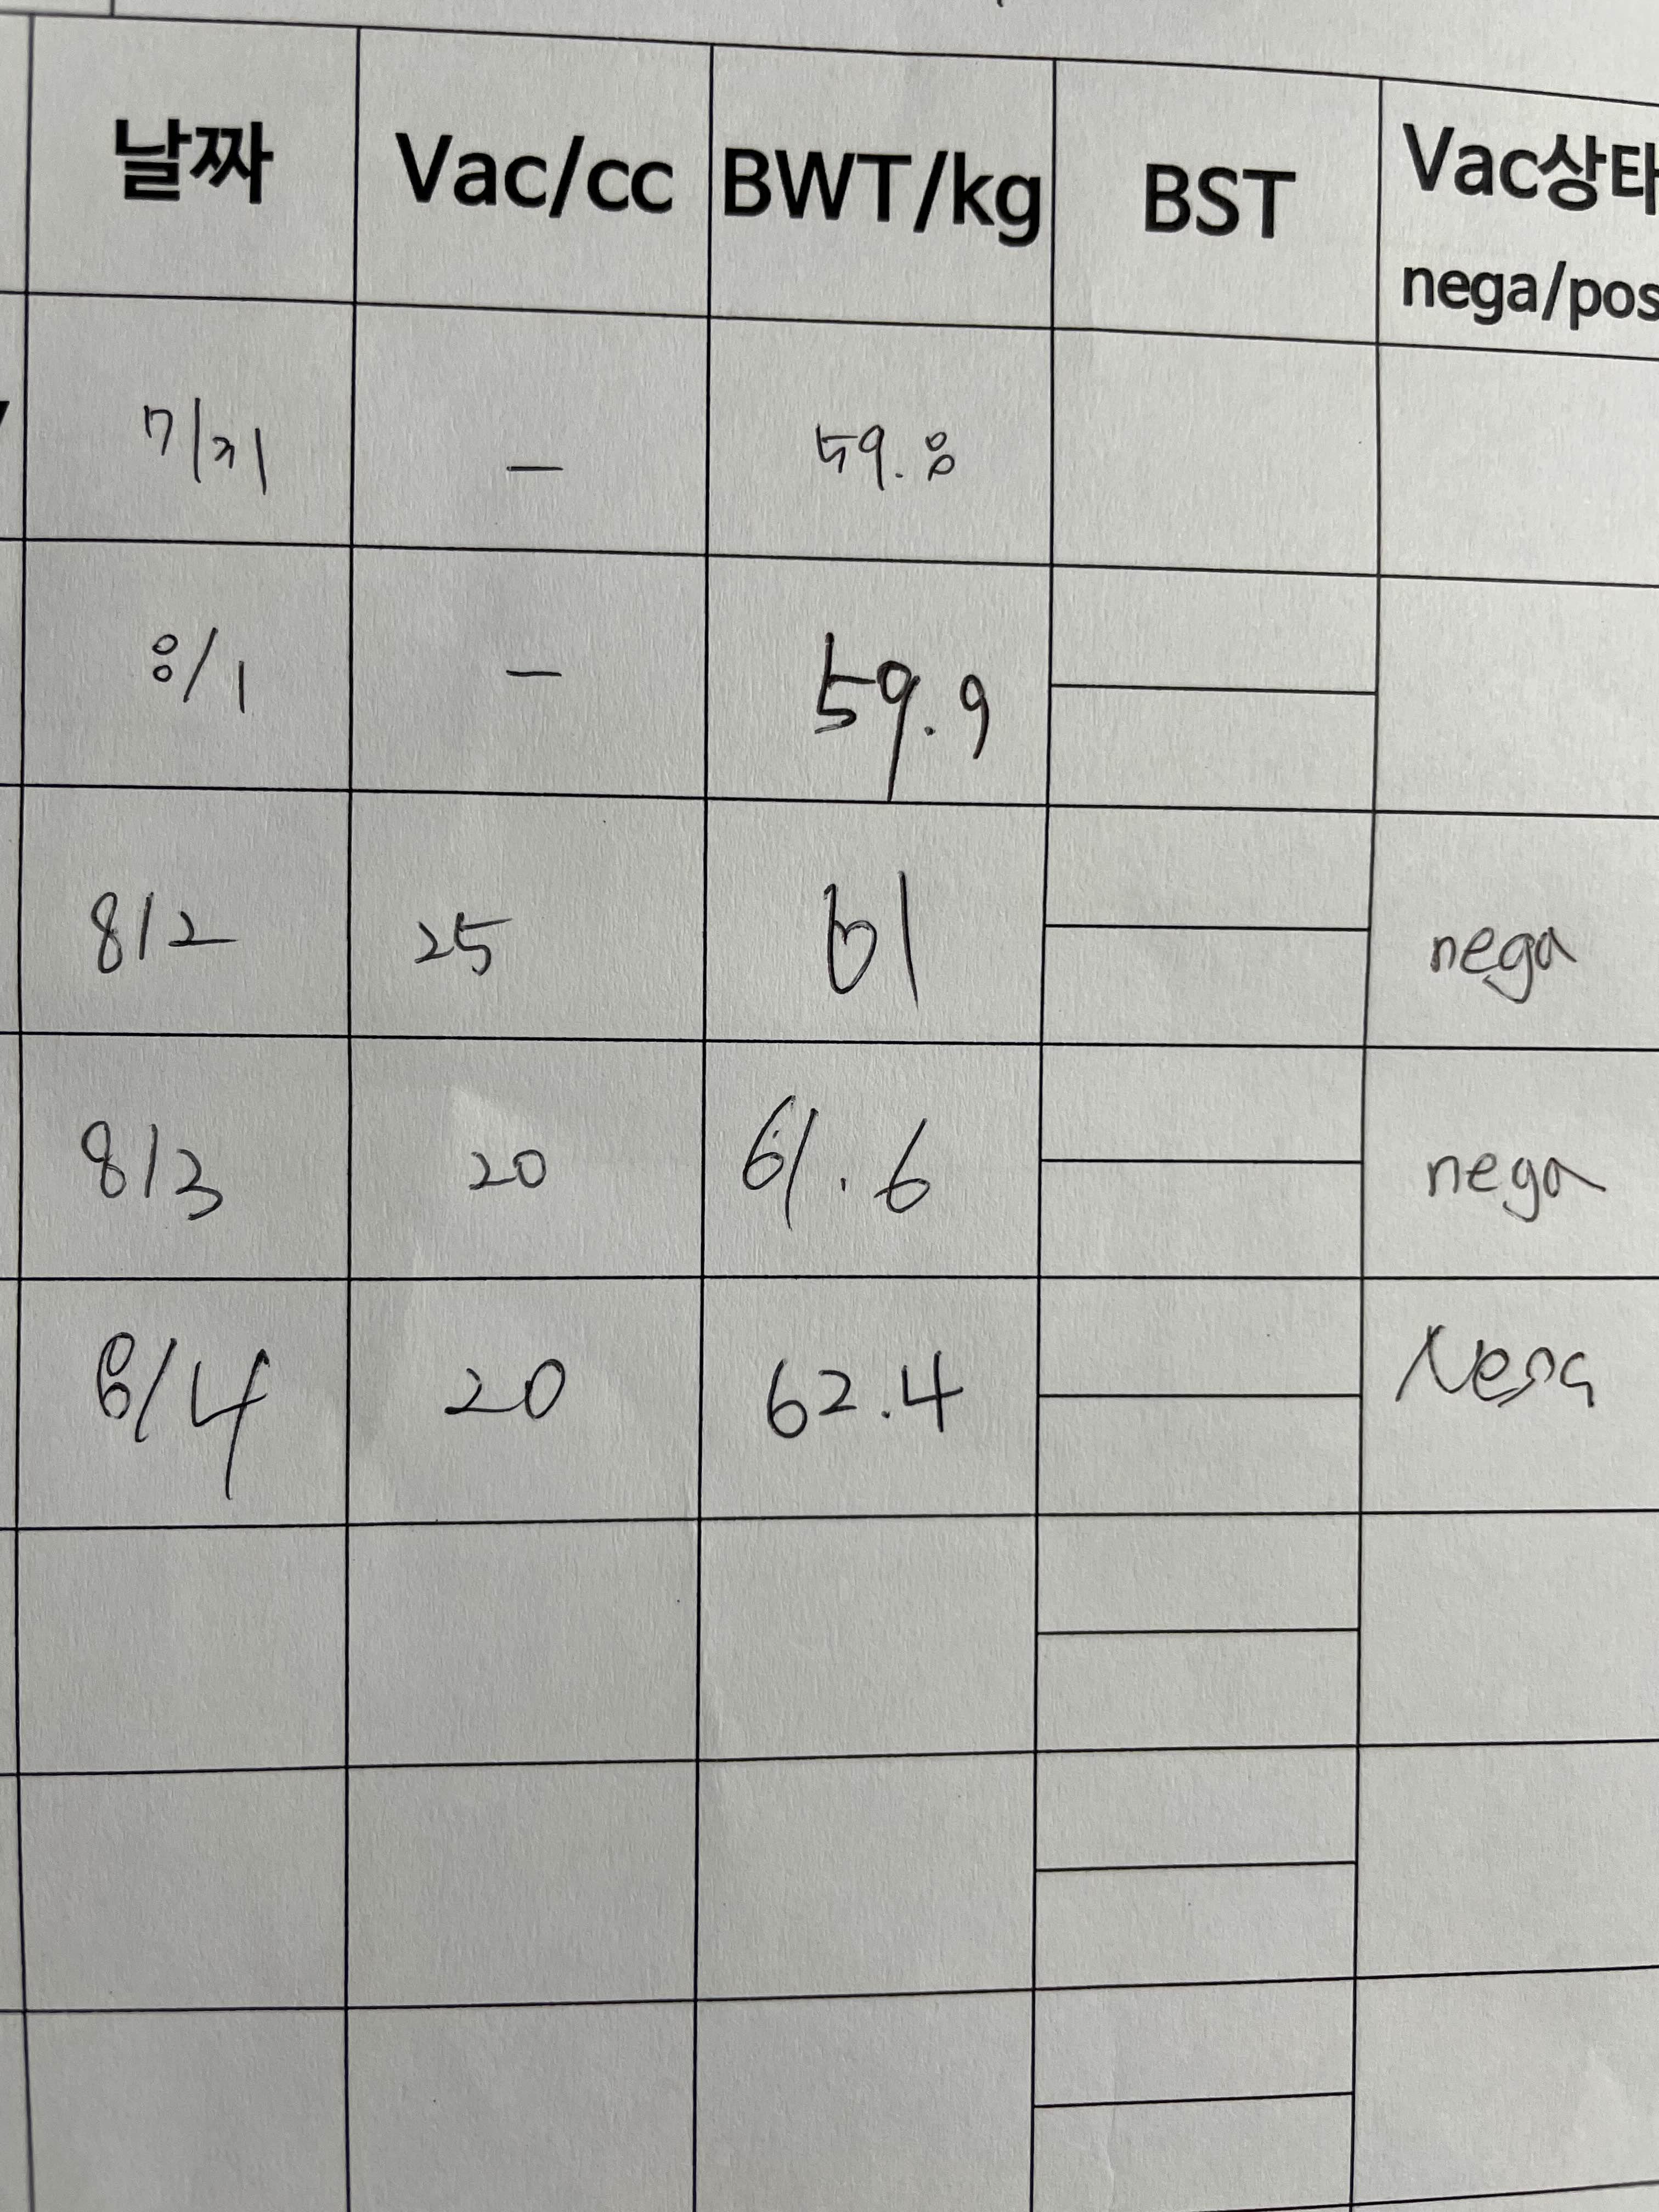 날짜 Vac/cc BWT/kg BST Vac상태
nega/pos
7/31 — 59.8
8/1 — 59.9
8/2 25 61 nega
8/3 20 61.6 nega
8/4 20 62.4 Nega